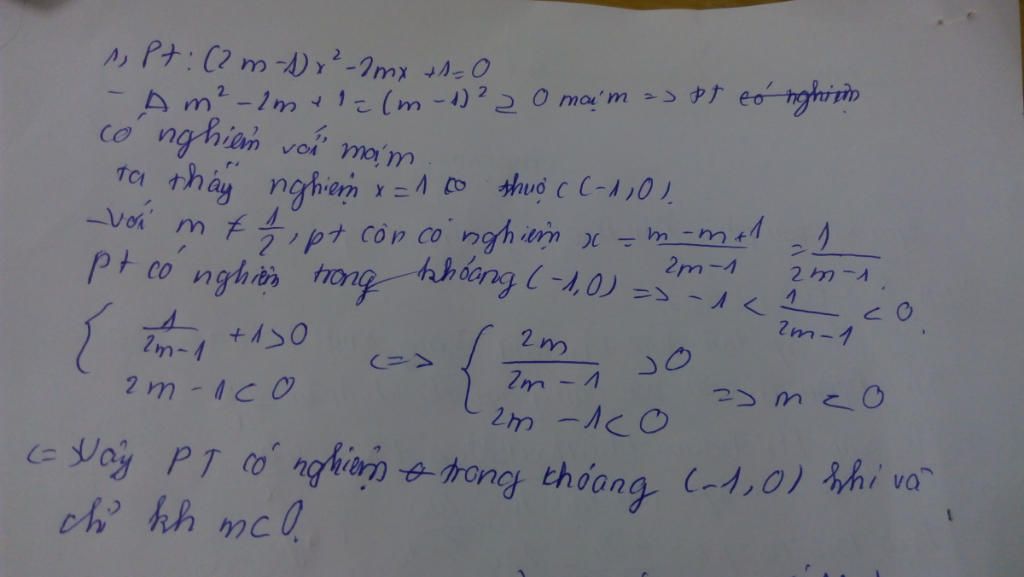 1, Pt: (2m-1)x² - 2mx + 1 = 0
- Δ m² - 2m + 1 = (m-1)² ≥ 0 mọi m => PT có nghiệm
có nghiệm với mọi m.
ta thấy nghiệm x = 1 thuộc (-1,0).
- Với m ≠ 1/2, pt còn có nghiệm x = (m-m+1)/(2m-1) = 1/(2m-1).
pt có nghiệm trong khoảng (-1,0) => -1 < 1/(2m-1) < 0.
{ 1/(2m-1) + 1 > 0 <=> { 2m/(2m-1) > 0
2m - 1 < 0 2m - 1 < 0 => m < 0
<= Vậy PT có nghiệm trong khoảng (-1,0) khi và
chỉ kh m < 0.